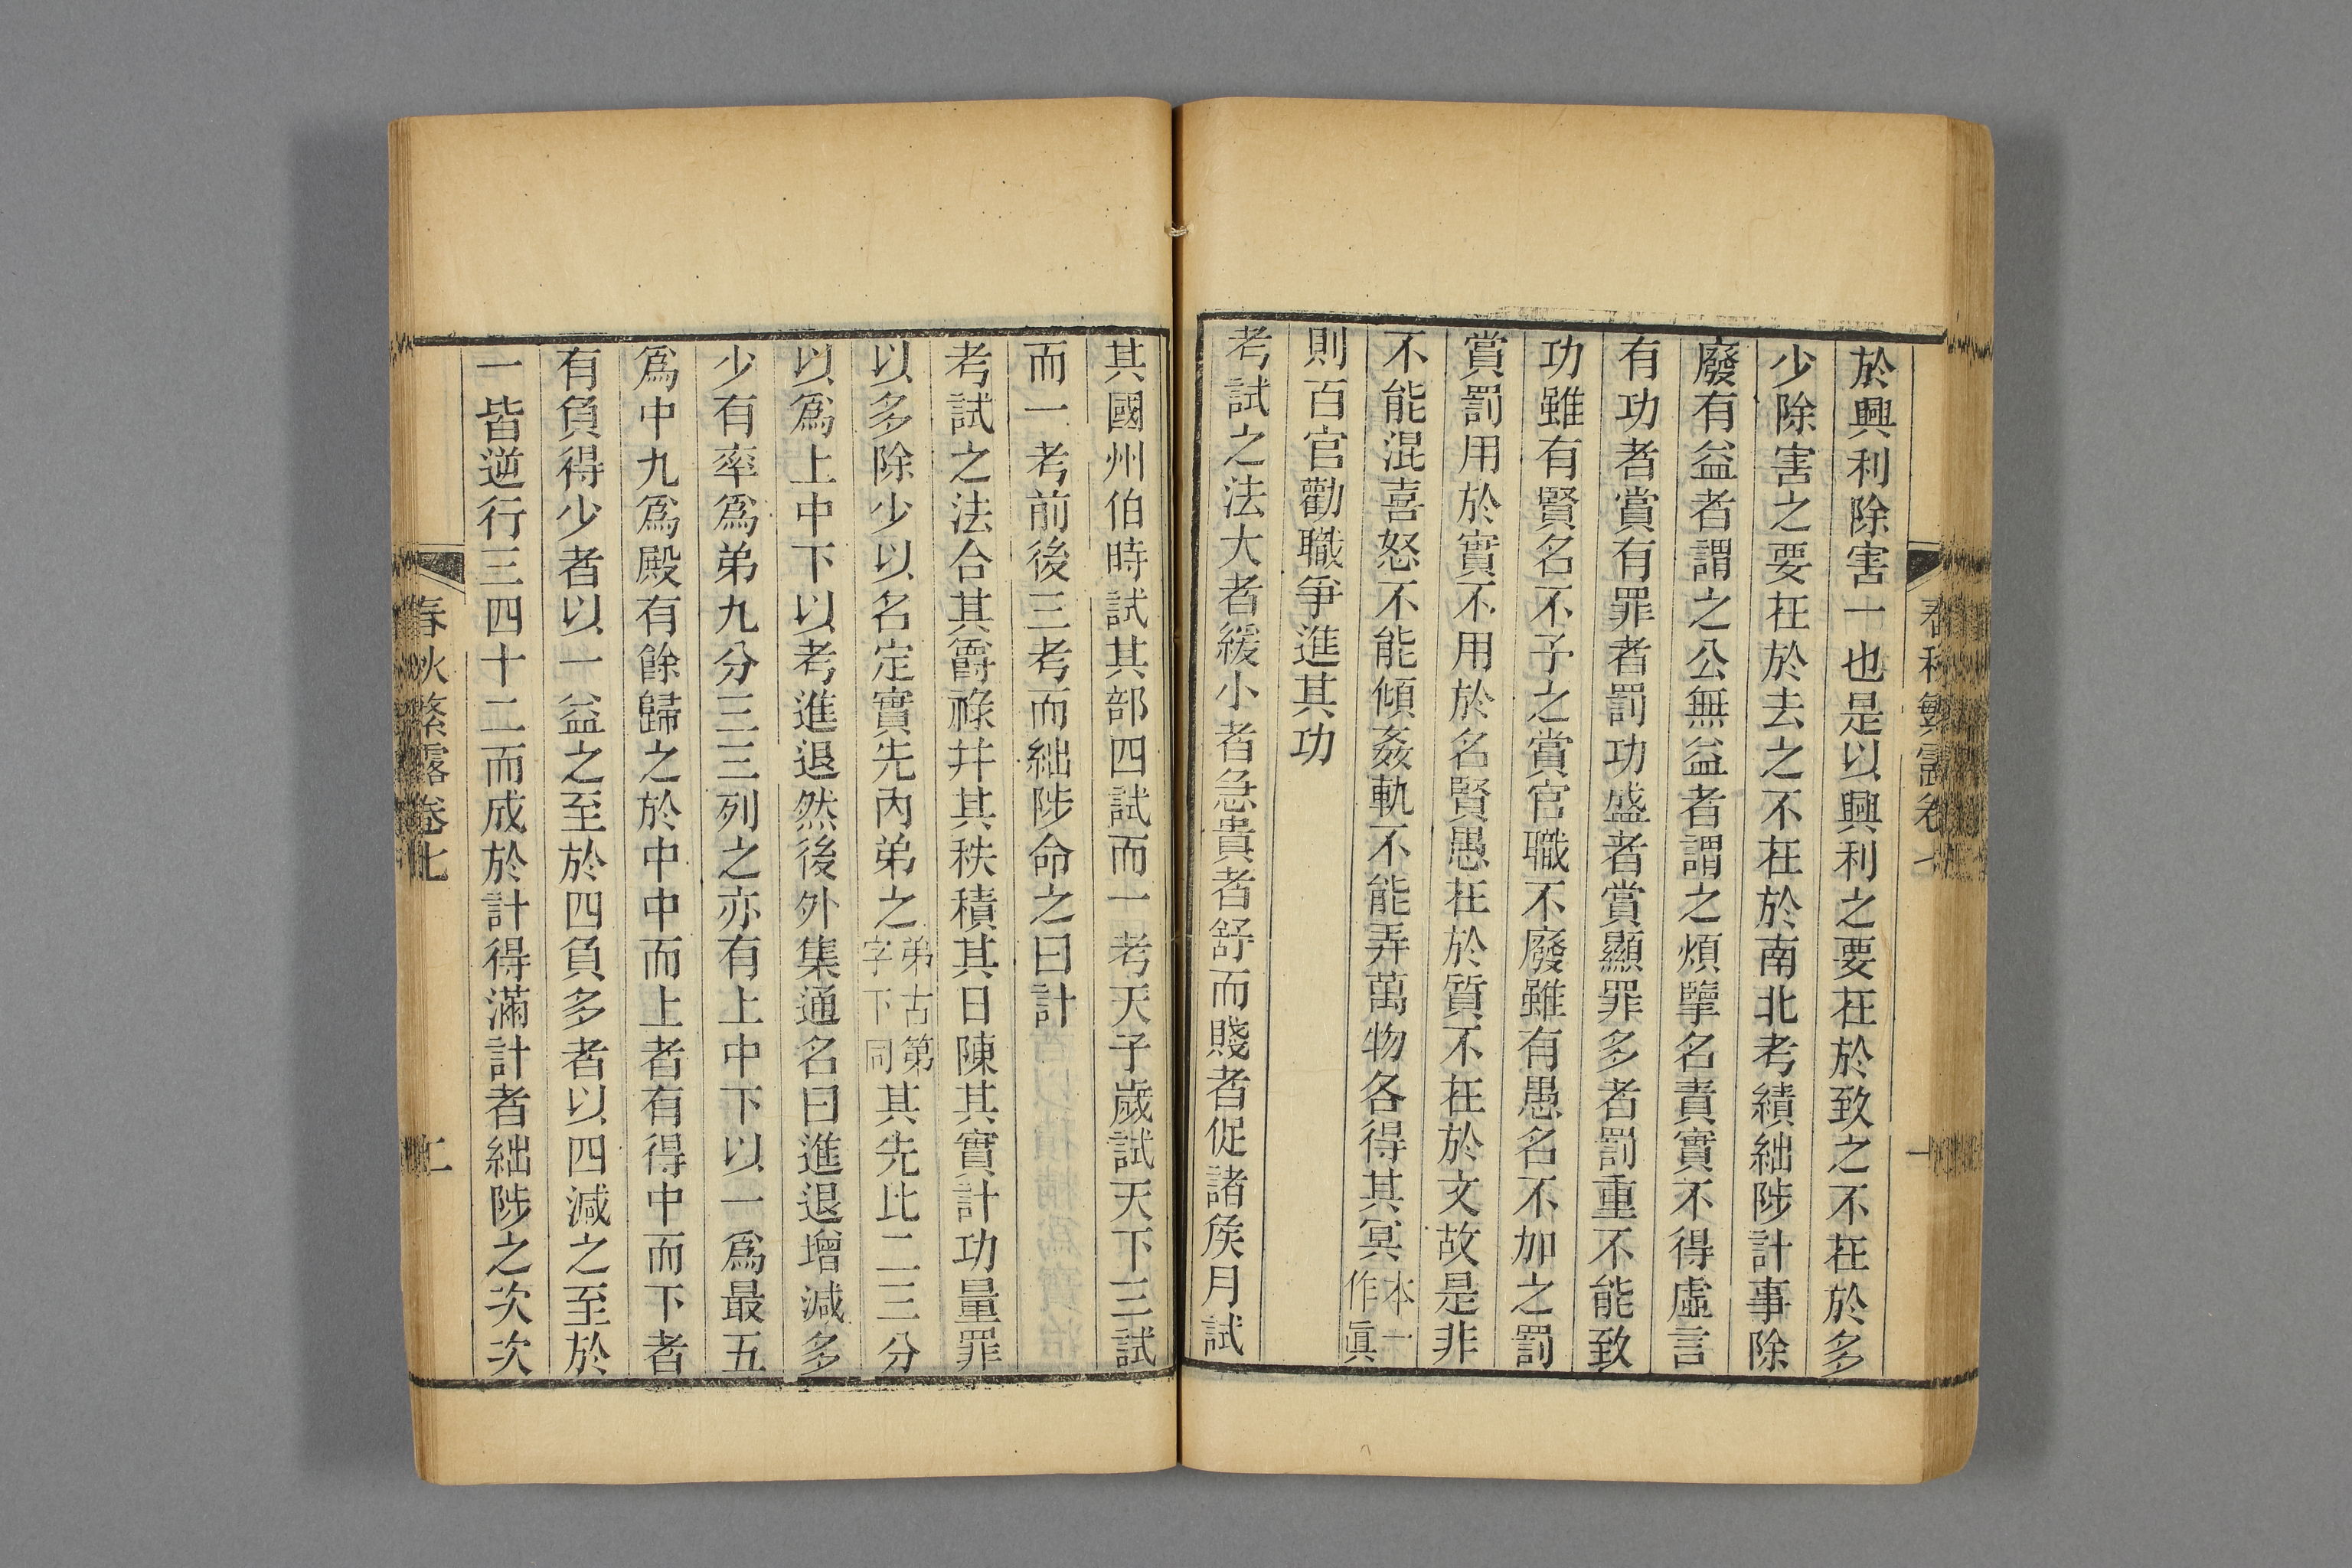 於興利除害一也是以興利之要在於致之不在於多
少除害之要在於去之不在於南北考績絀陟計事除
廢有益者謂之公無益者謂之煩擥名責實不得虛言
有功者賞有罪者罰功盛者賞顯罪多者罰重不能致
功雖有賢名不予之賞官職不廢雖有愚名不加之罰
賞罰用於實不用於名賢愚在於質不在於文故是非
不能混喜怒不能傾姦軌不能弄萬物各得其冥本一作眞
則百官勸職爭進其功
考試之法大者緩小者急貴者舒而賤者促諸矦月試
其國州伯時試其部四試而一考天子歲試天下三試
而一考前後三考而絀陟命之曰計
考試之法合其爵祿幷其秩積其日陳其實計功量罪
以多除少以名定實先內弟之弟古第字下同其先比二三分
以爲上中下以考進退然後外集通名曰進退增減多
少有率爲弟九分三三列之亦有上中下以一爲最五
爲中九爲殿有餘歸之於中中而上者有得中而下者
有負得少者以一益之至於四負多者以四減之至於
一皆逆行三四十二而成於計得滿計者絀陟之次次
春秋繁露卷七